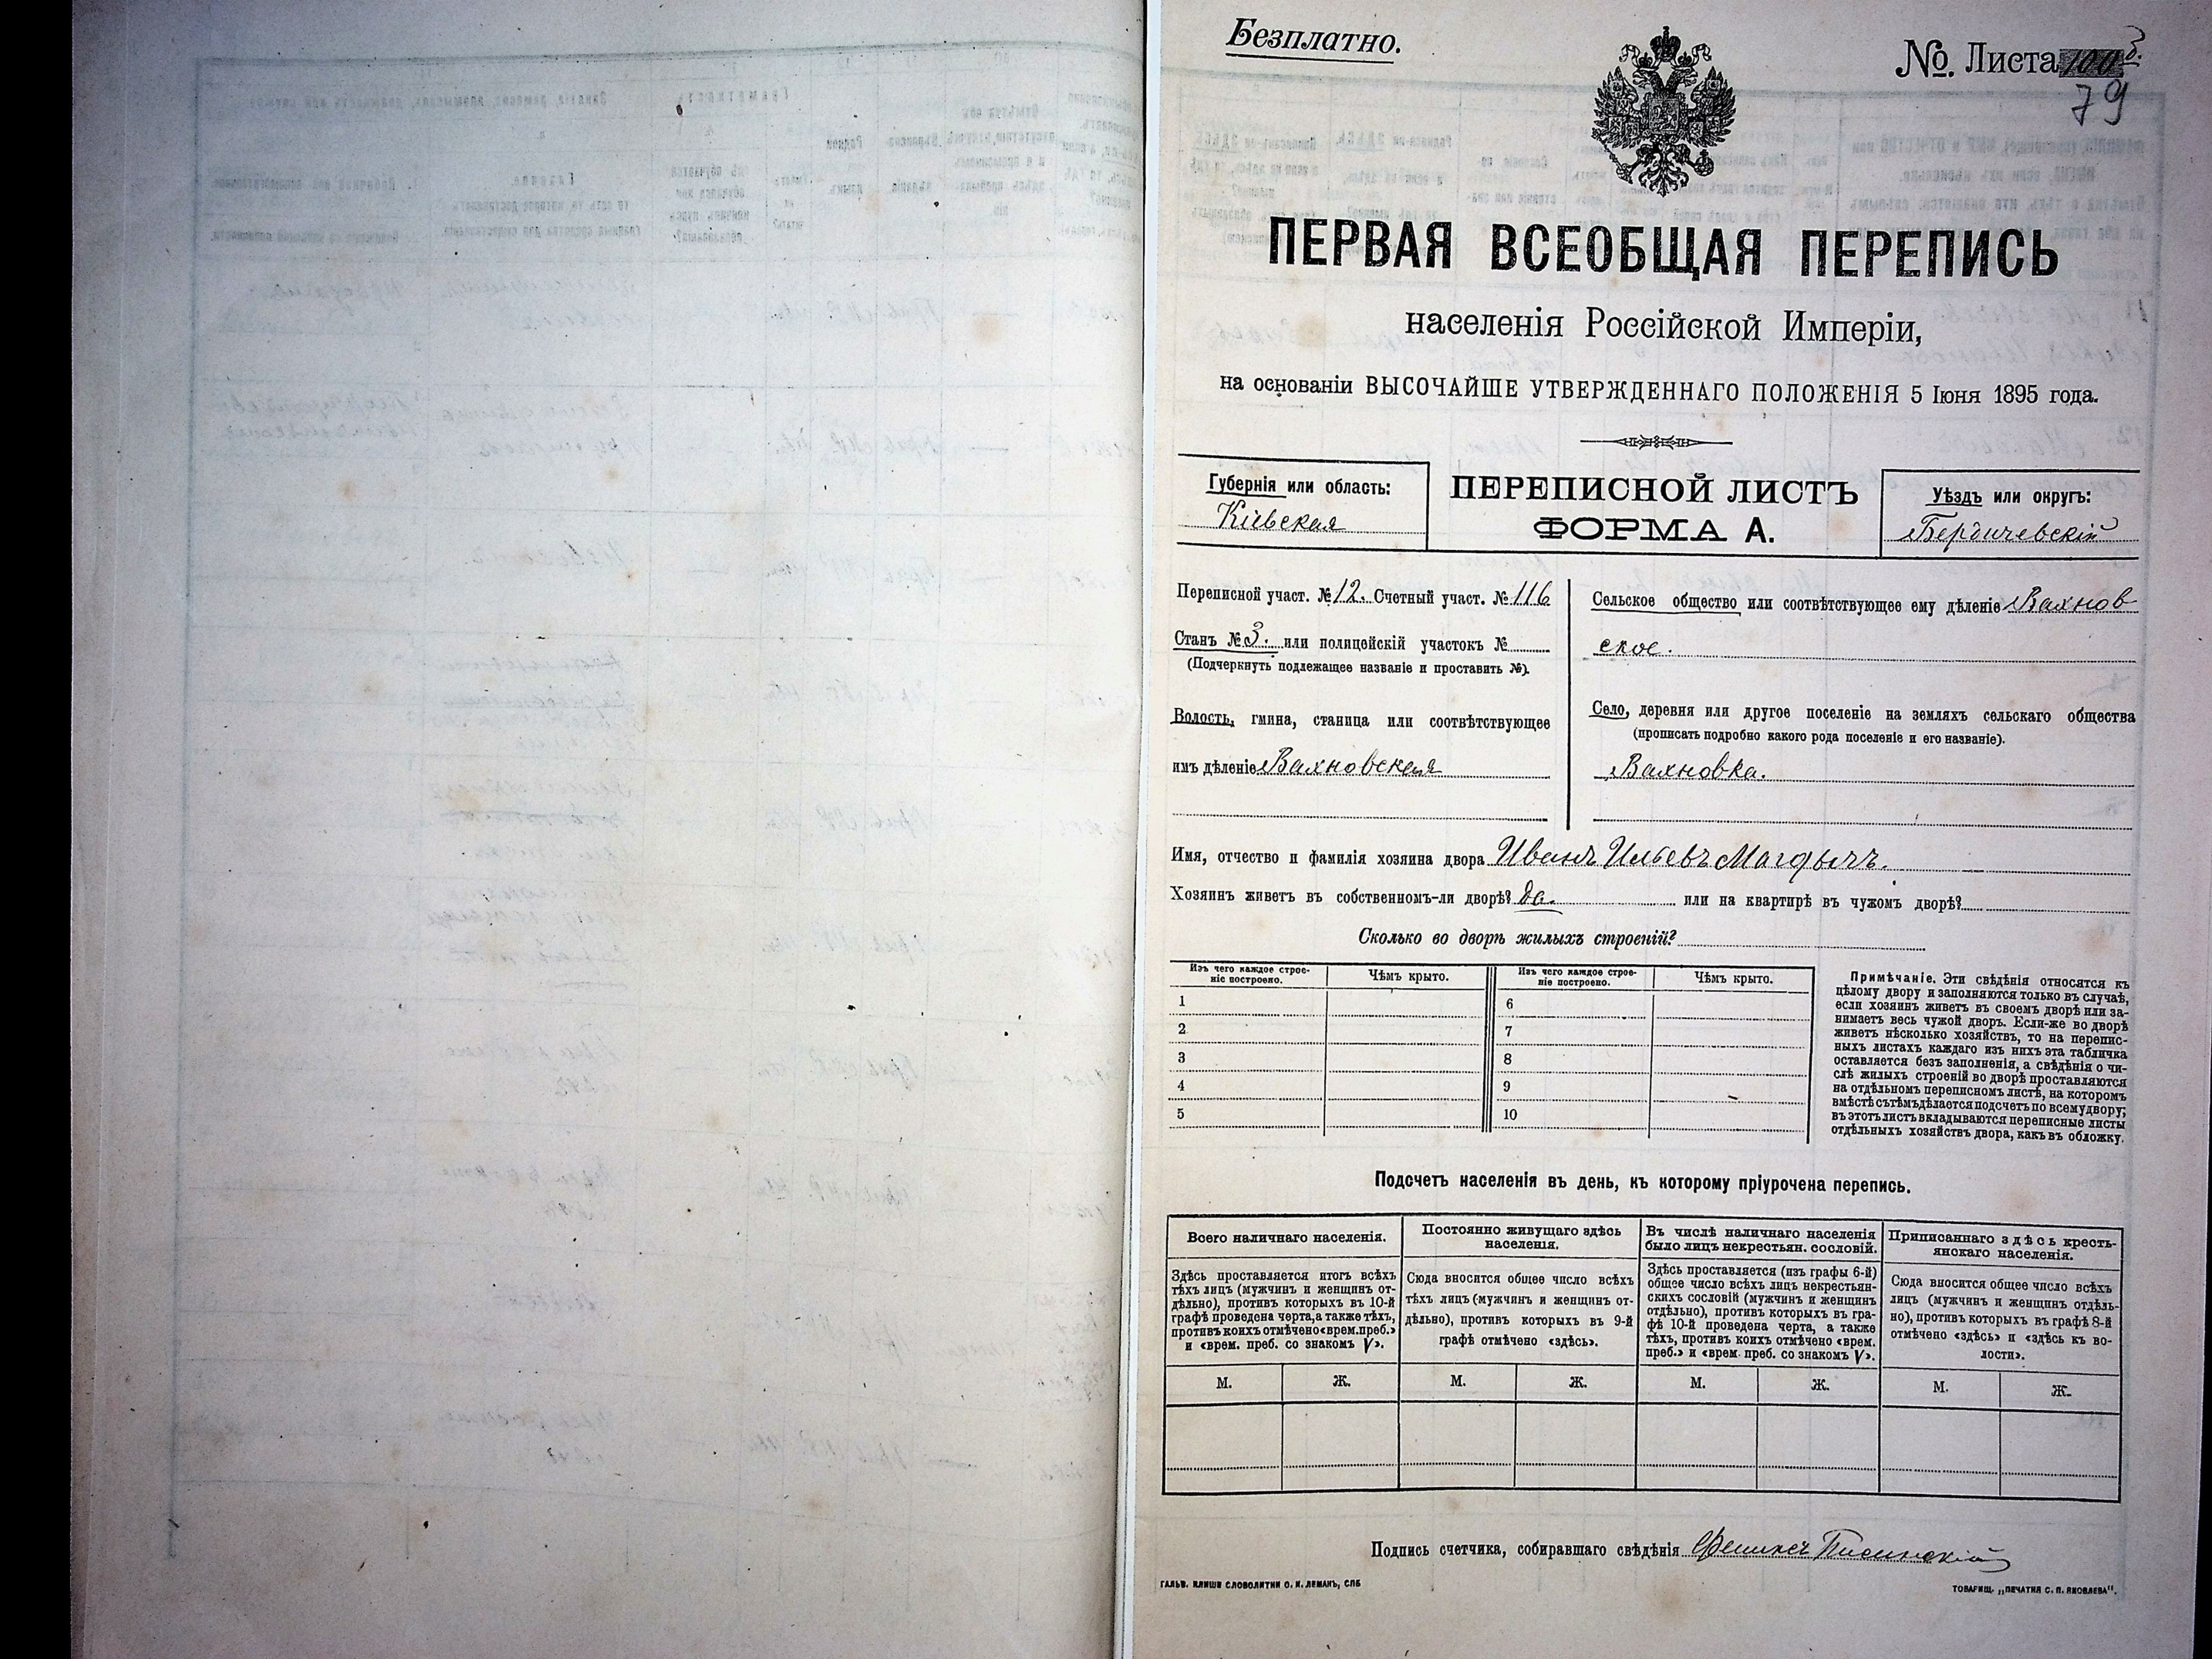 Безплатно.
№ Листа 100
79
ПЕРВАЯ ВСЕОБЩАЯ ПЕРЕПИСЬ
населенія Россійской Имперіи,
на основаніи ВЫСОЧАЙШЕ УТВЕРЖДЕННАГО ПОЛОЖЕНІЯ 5 Іюня 1895 года.
Губернія или область:
Кіевская
ПЕРЕПИСНОЙ ЛИСТЪ
ФОРМА А.
Уѣздъ или округъ:
Бердичевскій
Переписной участ. № 12. Счетный участ. № 116
Станъ № 3. или полицейскій участокъ №
(Подчеркнуть подлежащее названіе и проставить №).
Волость, гмина, станица или соотвѣтствующее
имъ дѣленіе Вахновская
Сельское общество или соотвѣтствующее ему дѣленіе Вахнов
ское.
Село, деревня или другое поселеніе на земляхъ сельскаго общества
(прописать подробно какого рода поселеніе и его названіе).
Вахновка.
Имя, отчество и фамилія хозяина двора Иванъ Ильевъ
Хозяинъ живетъ въ собственномъ-ли дворѣ? Да. или на квартирѣ въ чужомъ дворѣ?
Сколько во дворѣ жилыхъ строеній?
Изъ чего каждое строе-
ніе построено.
Чѣмъ крыто.
Изъ чего каждое строе-
ніе построено.
Чѣмъ крыто.
1
2
3
4
5
6
7
8
9
10
Примѣчаніе. Эти свѣдѣнія относятся къ
цѣлому двору и заполняются только въ случаѣ,
если хозяинъ живетъ въ своемъ дворѣ или за-
нимаетъ весь чужой дворъ. Если-же во дворѣ
живетъ нѣсколько хозяйствъ, то на перепис-
ныхъ листахъ каждаго изъ нихъ эта табличка
оставляется безъ заполненія, а свѣдѣнія о чи-
слѣ жилыхъ строеній во дворѣ проставляются
на отдѣльномъ переписномъ листѣ, на которомъ
вмѣстѣ съ тѣмъ дѣлается подсчетъ по всему двору;
въ этотъ листъ вкладываются переписные листы
отдѣльныхъ хозяйствъ двора, какъ въ обложку.
Подсчетъ населенія въ день, къ которому пріурочена перепись.
Всего наличнаго населенія.
Постоянно живущаго здѣсь
населенія.
Въ числѣ наличнаго населенія
было лицъ некрестьян. сословій.
Приписаннаго здѣсь кресть-
янскаго населенія.
Здѣсь проставляется итогъ всѣхъ
тѣхъ лицъ (мужчинъ и женщинъ от-
дѣльно), противъ которыхъ въ 10-й
графѣ проведена черта, а также тѣхъ,
противъ коихъ отмѣчено «врем. преб.»
и «врем. преб. со знакомъ V».
Сюда вносится общее число всѣхъ
тѣхъ лицъ (мужчинъ и женщинъ от-
дѣльно), противъ которыхъ въ 9-й
графѣ отмѣчено «здѣсь».
Здѣсь проставляется (изъ графы 6-й)
общее число всѣхъ лицъ некрестьян-
скихъ сословій (мужчинъ и женщинъ
отдѣльно), противъ которыхъ въ гра-
фѣ 10-й проведена черта, а также
тѣхъ, противъ коихъ отмѣчено «врем.
преб.» и «врем. преб. со знакомъ V».
Сюда вносится общее число всѣхъ
лицъ (мужчинъ и женщинъ отдѣль-
но), противъ которыхъ въ графѣ 8-й
отмѣчено «здѣсь» и «здѣсь къ во-
лости».
М. Ж. М. Ж. М. Ж. М. Ж.
Подпись счетчика, собиравшаго свѣдѣнія
ГАЛЬВ. КЛИШЕ СЛОВОЛИТНИ О. И. ЛЕМАНЪ, СПБ
ТОВАРИЩ. „ПЕЧАТНЯ С. П. ЯКОВЛЕВА“.